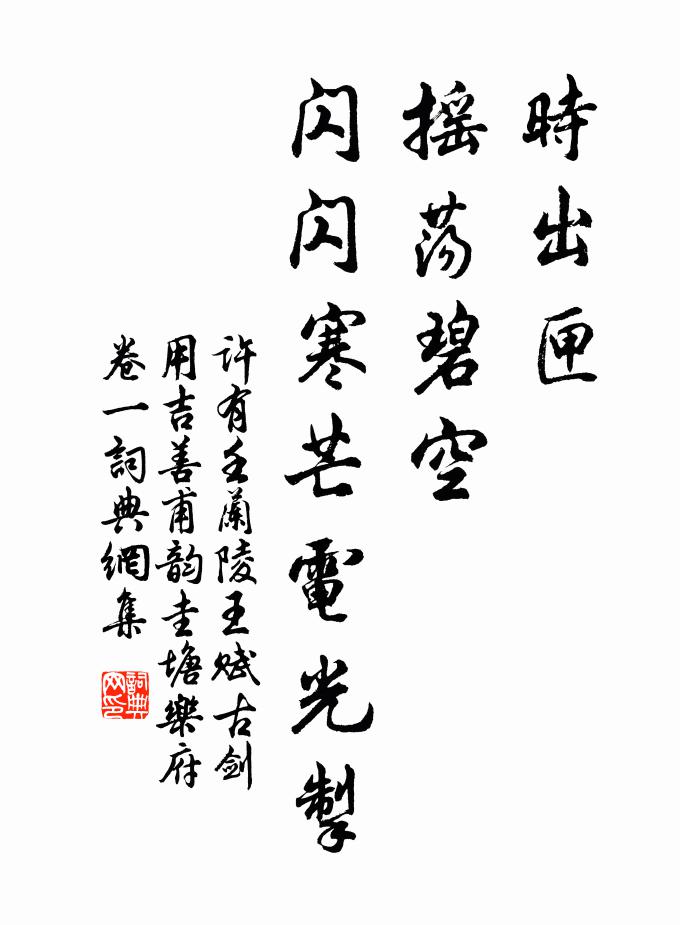 時出匣
摇荡碧空
閃閃寒芒電光掣
許有壬蘭陵王賦古劍
用吉善甫韵圭塘樂府
卷一詞典網集
詞典
网印